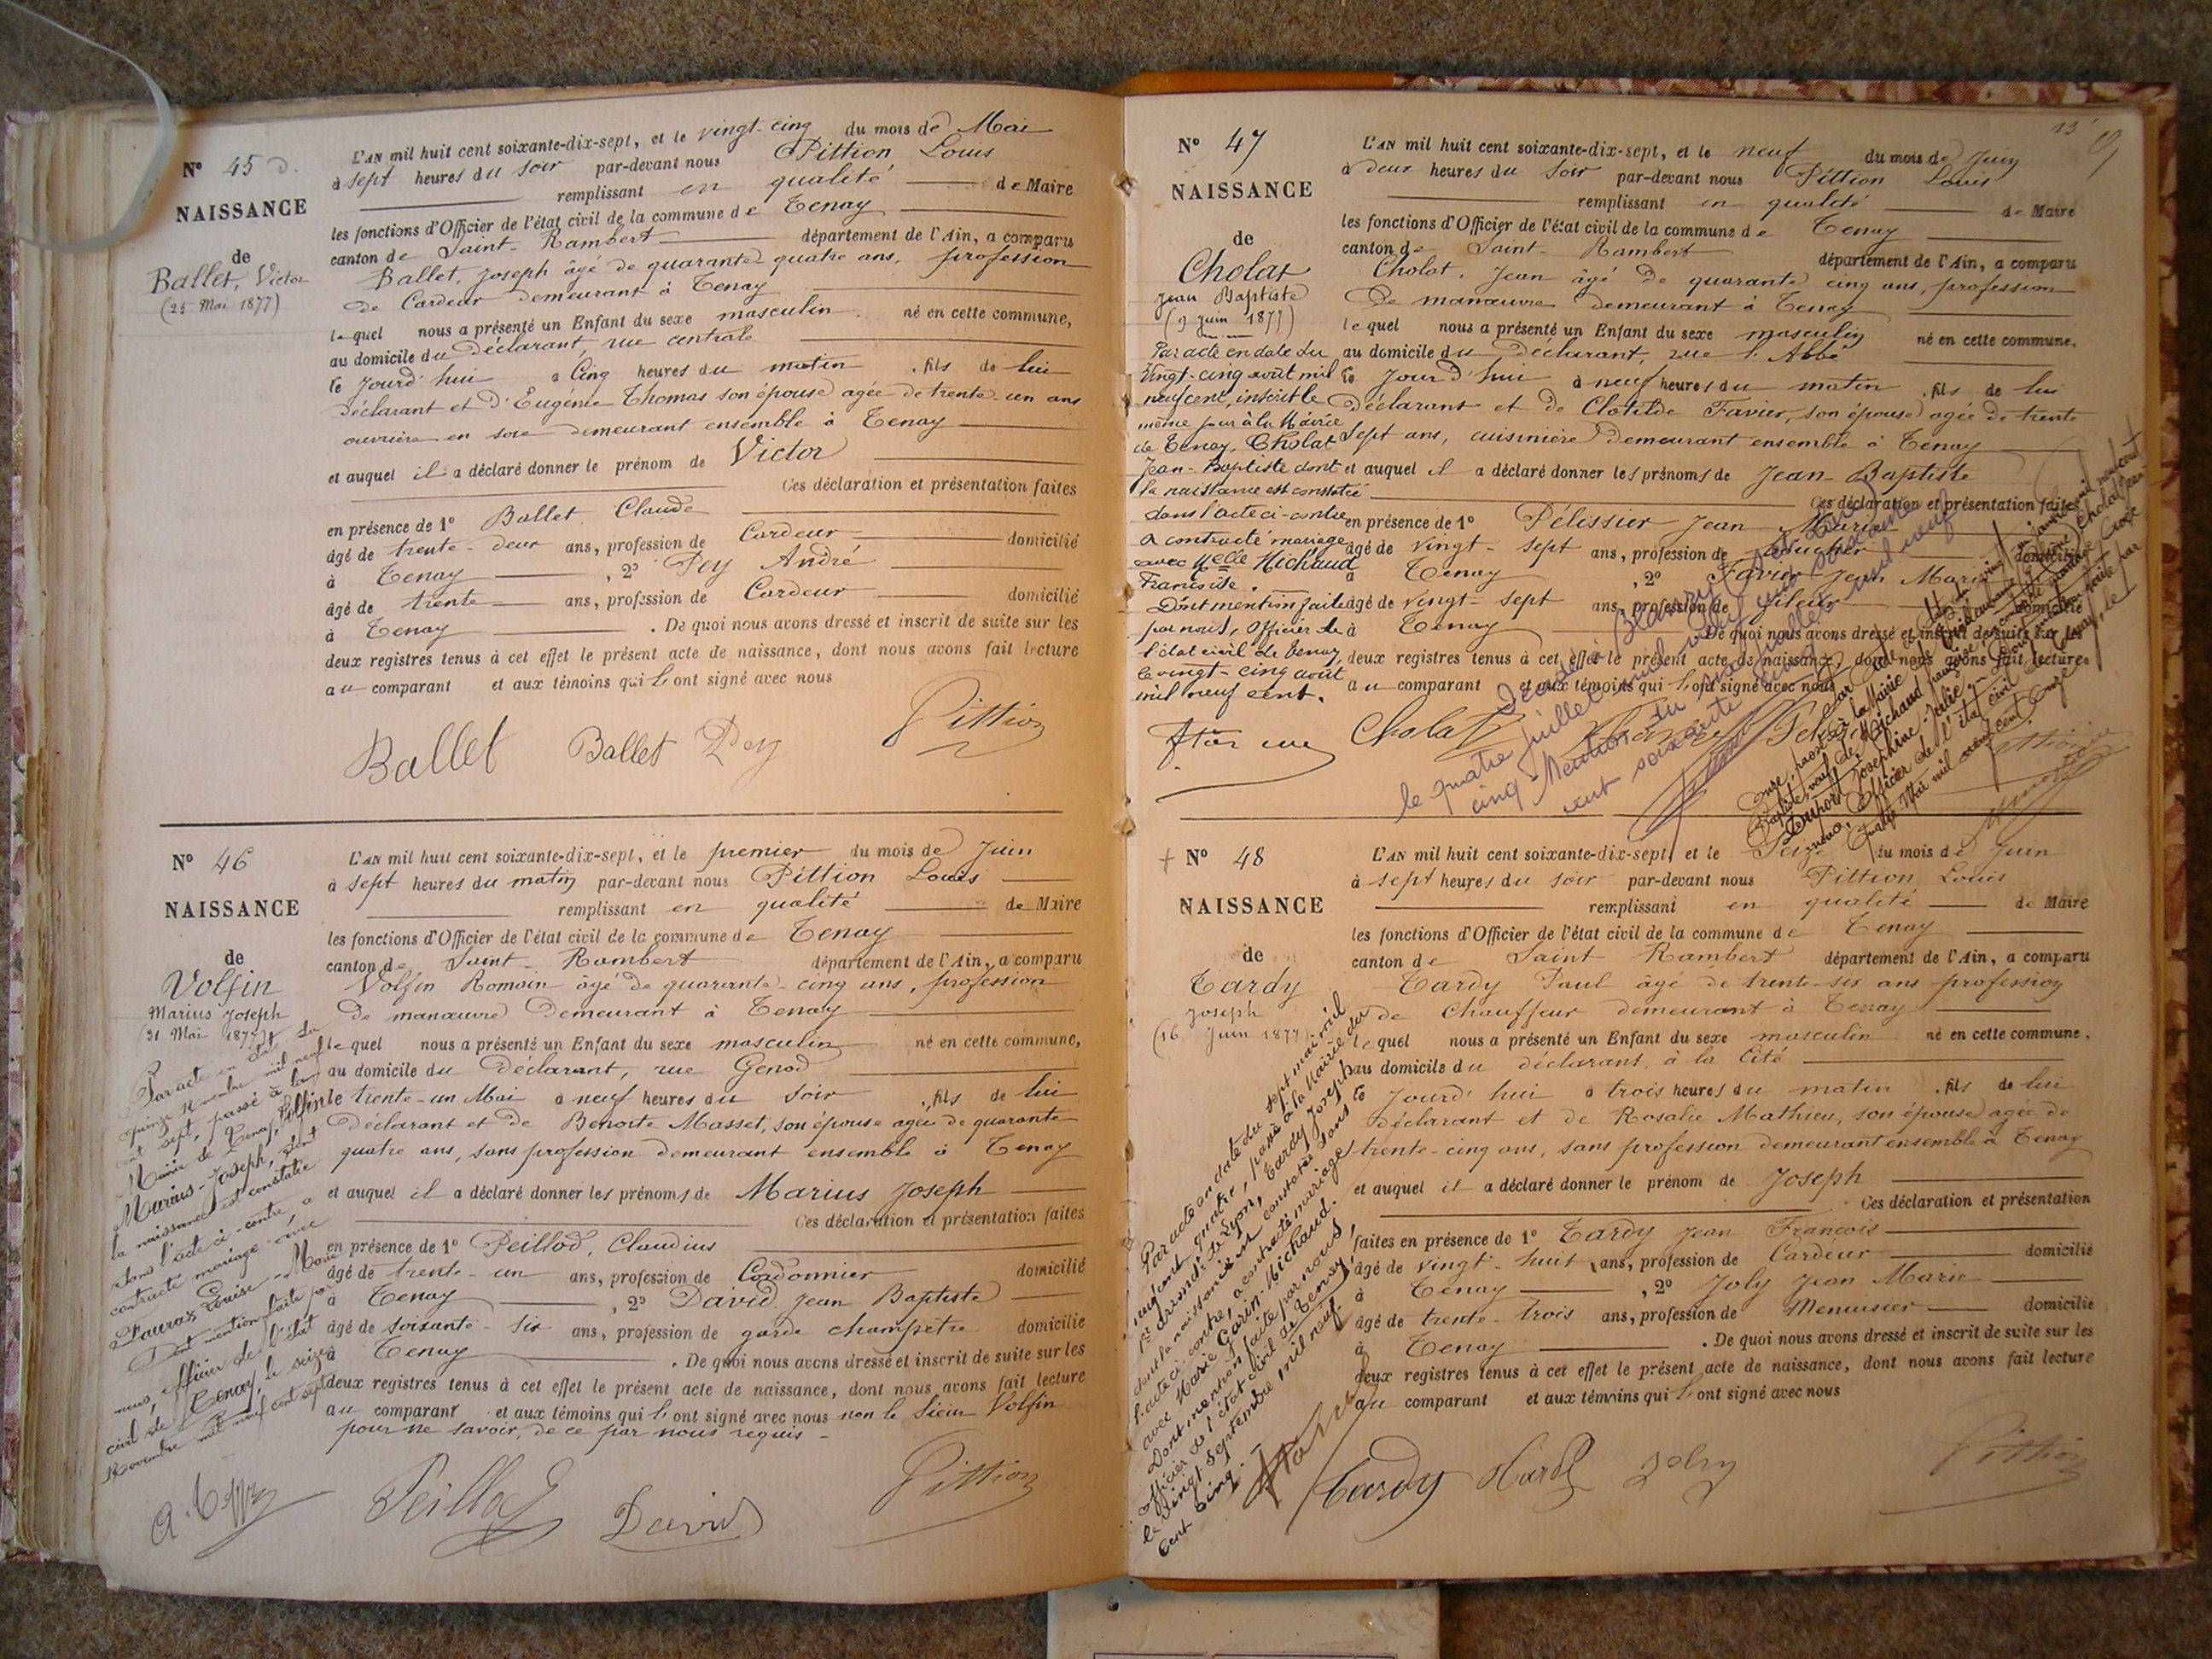 N° 45 d.
NAISSANCE
de
Ballet, Victor
(25 Mai 1877)
L'AN mil huit cent soixante-dix-sept, et le vingt-cinq du mois de Mai
à sept heures du soir par-devant nous Pittion Louis
remplissant en qualité de Maire
les fonctions d'Officier de l'état civil de la commune de Tenay
canton de Saint-Rambert département de l'Ain, a comparu
Ballet, Joseph âgé de quarante-quatre ans, profession
de Cardeur demeurant à Tenay
lequel nous a présenté un Enfant du sexe masculin né en cette commune,
au domicile du Déclarant, rue centrale
le jourd'hui à Cinq heures du matin, fils de lui
Déclarant et d'Eugénie Thomas son épouse agée de trente-un ans
ouvrière en soie demeurant ensemble à Tenay
et auquel il a déclaré donner le prénom de Victor
Ces déclaration et présentation faites
en présence de 1° Ballet, Claude
âgé de trente-deux ans, profession de Cardeur domicilié
à Tenay, 2° Pey André
âgé de trente ans, profession de Cardeur domicilié
à Tenay. De quoi nous avons dressé et inscrit de suite sur les
deux registres tenus à cet effet le présent acte de naissance, dont nous avons fait lecture
au comparant et aux témoins qui l'ont signé avec nous
Ballet Ballet Pey Pittion
N° 46
NAISSANCE
de
Volfin
Marius Joseph
(31 Mai 1877)
Par acte en date du
quinze Novembre mil neuf
cent sept, passé à la
Mairie de Tenay, Volfin
Marius-Joseph, dont
la naissance est constatée
dans l'acte ci-contre a
contracté mariage avec
Louise-Marie
Dont mention faite par
nous, officier de l'état
civil de Tenay, le seize
Novembre mil neuf cent sept
L'AN mil huit cent soixante-dix-sept, et le premier du mois de Juin
à sept heures du matin par-devant nous Pittion Louis
remplissant en qualité de Maire
les fonctions d'Officier de l'état civil de la commune de Tenay
canton de Saint-Rambert département de l'Ain, a comparu
Volfin Romain âgé de quarante-cinq ans, profession
de manœuvre demeurant à Tenay
lequel nous a présenté un Enfant du sexe masculin né en cette commune,
au domicile du Déclarant, rue Genod
le trente-un Mai à neuf heures du soir, fils de lui
Déclarant et de Benoite Masset, son épouse agée de quarante
quatre ans, sans profession demeurant ensemble à Tenay
et auquel il a déclaré donner les prénoms de Marius Joseph
Ces déclaration et présentation faites
en présence de 1° Peillod, Claudius
âgé de trente-un ans, profession de Cordonnier domicilié
à Tenay, 2° David Jean Baptiste
âgé de soixante-six ans, profession de garde champêtre domicilié
à Tenay. De quoi nous avons dressé et inscrit de suite sur les
deux registres tenus à cet effet le présent acte de naissance, dont nous avons fait lecture
au comparant et aux témoins qui l'ont signé avec nous non le Sieur Volfin
pour ne savoir, de ce par nous requis
Peillod David Pittion
13
N° 47
NAISSANCE
de
Cholat
Jean Baptiste
(9 Juin 1877)
Par acte en date du
vingt-cinq août mil
neuf cent, inscrit le
même jour à la Mairie
de Tenay, Cholat
Jean-Baptiste dont
la naissance est constatée
dans l'acte ci-contre
a contracté mariage
avec Melle Michaud
Françoise.
Dont mention faite
par nous, Officier de
l'état civil de Tenay,
le vingt-cinq août
mil neuf cent.
L'AN mil huit cent soixante-dix-sept, et le neuf du mois de Juin
à deux heures du soir par-devant nous Pittion Louis
remplissant en qualité de Maire
les fonctions d'Officier de l'état civil de la commune de Tenay
canton de Saint-Rambert département de l'Ain, a comparu
Cholat, Jean âgé de quarante cinq ans, profession
de manœuvre demeurant à Tenay
lequel nous a présenté un Enfant du sexe masculin né en cette commune,
au domicile du Déclarant, rue l'Abbé
le jour d'hui à neuf heures du matin, fils de lui
Déclarant et de Clotilde Favier, son épouse agée de trente
sept ans, cuisinière demeurant ensemble à Tenay
et auquel il a déclaré donner les prénoms de Jean-Baptiste
Ces déclaration et présentation faites
en présence de 1° Pélissier Jean Marie
âgé de vingt-sept ans, profession de boucher domicilié
à Tenay, 2° Favier Jean Marie
âgé de vingt-sept ans, profession de fileur domicilié
à Tenay. De quoi nous avons dressé et inscrit de suite sur les
deux registres tenus à cet effet le présent acte de naissance, dont nous avons fait lecture
au comparant et aux témoins qui l'ont signé avec nous
Cholat
le quatre juillet mil neuf cent soixante
cinq. Mention du six juillet mil neuf
cent soixante cinq
N° 48
NAISSANCE
de
Tardy
Joseph
(16 Juin 1877)
Par acte en date du sept mai mil
neuf cent quatre, passé à la Mairie du
1er arrondt de Lyon, Tardy Joseph
dont la naissance est constatée dans
l'acte ci-contre, a contracté mariage
avec Marie Garin-Michaud.
Dont mention faite par nous,
officier de l'état civil de Tenay,
le vingt septembre mil neuf
cent cinq.
L'AN mil huit cent soixante-dix-sept, et le Seize du mois de Juin
à sept heures du soir par-devant nous Pittion Louis
remplissant en qualité de Maire
les fonctions d'Officier de l'état civil de la commune de Tenay
canton de Saint Rambert département de l'Ain, a comparu
Tardy Paul âgé de trente-six ans profession
de Chauffeur demeurant à Tenay
lequel nous a présenté un Enfant du sexe masculin né en cette commune,
au domicile du déclarant, à la Cité
le jourd'hui à trois heures du matin, fils de lui
déclarant et de Rosalie Mathieu, son épouse agée de
trente-cinq ans, sans profession demeurant ensemble à Tenay
et auquel il a déclaré donner le prénom de Joseph
Ces déclaration et présentation
faites en présence de 1° Tardy Jean François
âgé de vingt-huit ans, profession de Cardeur domicilié
à Tenay, 2° Joly Jean Marie
âgé de trente-trois ans, profession de Menuisier domicilié
à Tenay. De quoi nous avons dressé et inscrit de suite sur les
deux registres tenus à cet effet le présent acte de naissance, dont nous avons fait lecture
au comparant et aux témoins qui l'ont signé avec nous
Tardy Tardy Joly Pittion